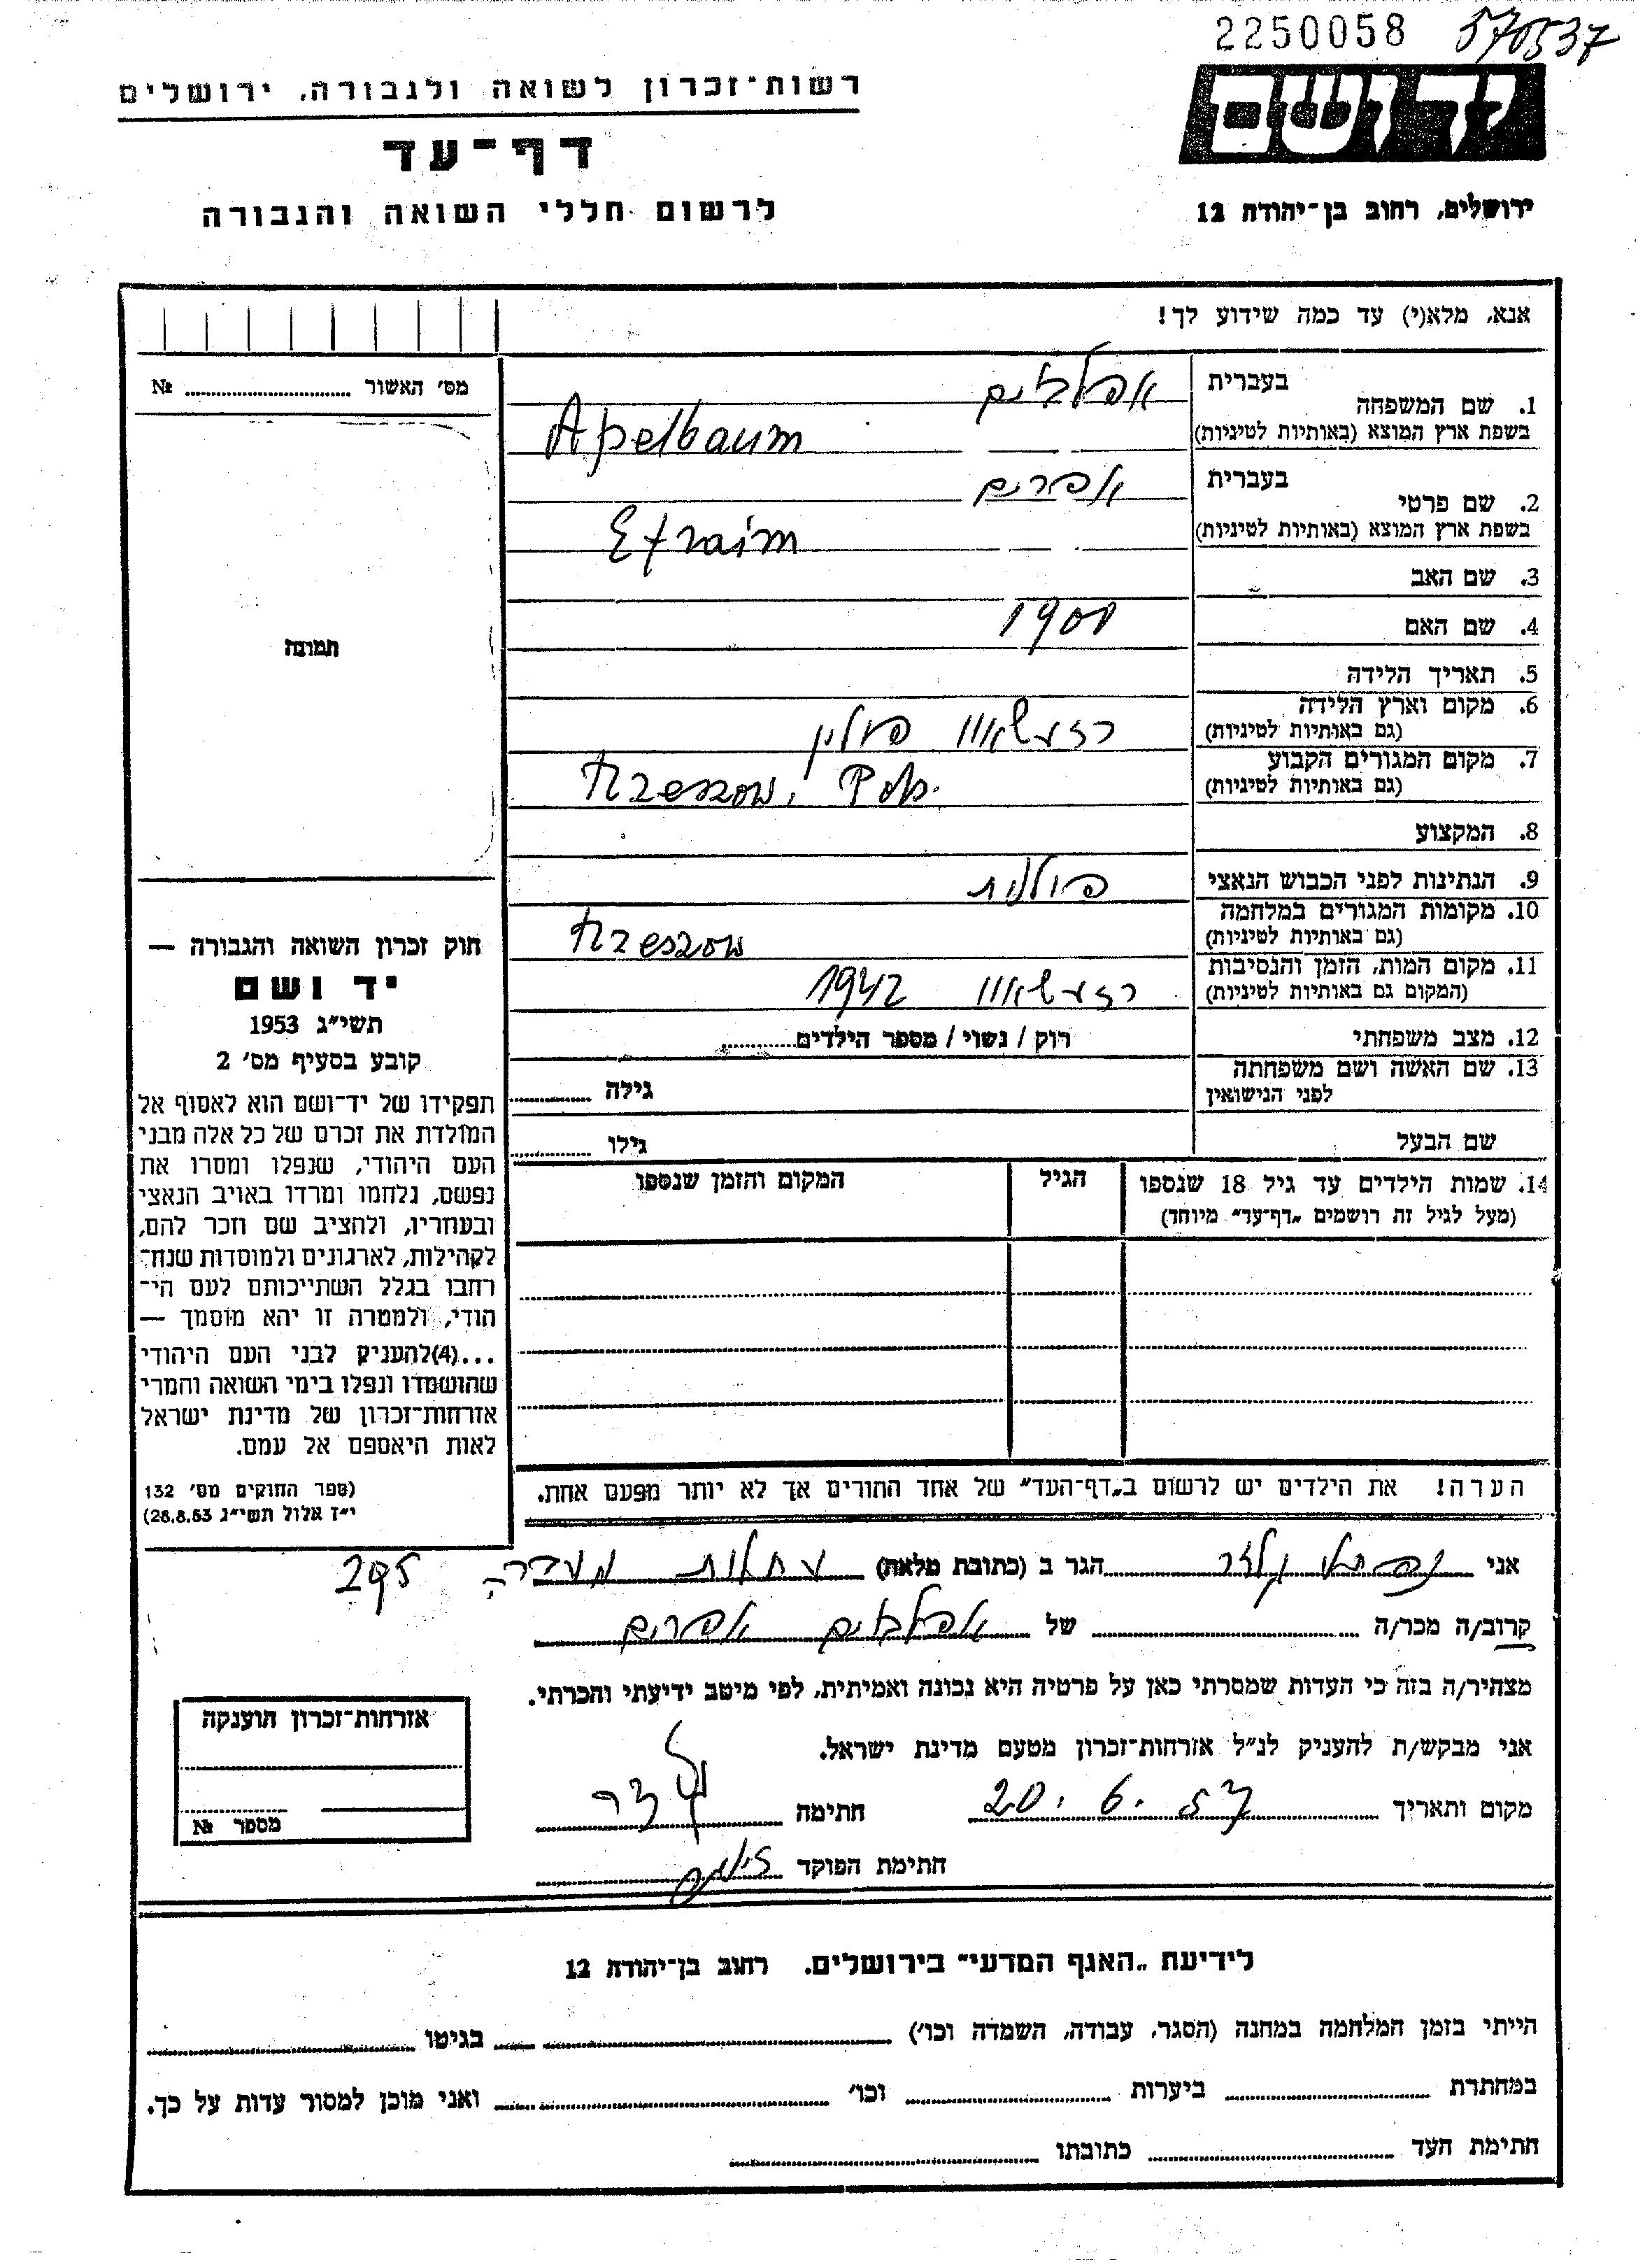 2250058 570537
יד ושם
רשות-זכרון לשואה ולגבורה, ירושלים
דף-עד
לרשום חללי השואה והגבורה
ירושלים, רחוב בן-יהודה 12
אנא, מלא(י) עד כמה שידוע לך!
מס׳ האשור № ........
תמונה
1. שם המשפחה
בעברית אפלבוים
בשפת ארץ המוצא (באותיות לטיניות) Apelbaum
2. שם פרטי
בעברית אפרים
בשפת ארץ המוצא (באותיות לטיניות) Efraim
3. שם האב
4. שם האם 1901
5. תאריך הלידה
6. מקום וארץ הלידה
(גם באותיות לטיניות) רזעשאוו פולין
7. מקום המגורים הקבוע
(גם באותיות לטיניות) Rzeszow, Pols.
8. המקצוע
9. הנתינות לפני הכבוש הנאצי פולנית
10. מקומות המגורים במלחמה
(גם באותיות לטיניות) Rzeszow
11. מקום המות, הזמן והנסיבות
(המקום גם באותיות לטיניות) רזעשאוו 1942
12. מצב משפחתי רוק / נשוי / מספר הילדים........
13. שם האשה ושם משפחתה
לפני הנישואין גילה ........
שם הבעל גילו ........
14. שמות הילדים עד גיל 18 שנספו הגיל המקום והזמן שנספו
(מעל לגיל זה רושמים „דף-עד״ מיוחד)
הערה! את הילדים יש לרשום ב„דף-העד״ של אחד ההורים אך לא יותר מפעם אחת.
חוק זכרון השואה והגבורה —
יד ושם
תשי״ג 1953
קובע בסעיף מס׳ 2
תפקידו של יד-ושם הוא לאסוף אל
המולדת את זכרם של כל אלה מבני
העם היהודי, שנפלו ומסרו את
נפשם, נלחמו ומרדו באויב הנאצי
ובעוזריו, ולהציב שם וזכר להם,
לקהילות, לארגונים ולמוסדות שנח-
רבו בגלל השתייכותם לעם הי-
הודי, ולמטרה זו יהא מוסמך —
...(4)להעניק לבני העם היהודי
שהושמדו ונפלו בימי השואה והמרי
אזרחות-זכרון של מדינת ישראל
לאות היאספם אל עמם.
(ספר החוקים מס׳ 132
י״ז אלול תשי״ג 28.8.53)
אני נפתלי הגר ב (כתובת מלאה) מעברה 295
קרוב/ה מכר/ה ........ של אפלבוים אפרים
מצהיר/ה בזה כי העדות שמסרתי כאן על פרטיה היא נכונה ואמיתית, לפי מיטב ידיעתי והכרתי.
אני מבקש/ת להעניק לנ״ל אזרחות-זכרון מטעם מדינת ישראל.
מקום ותאריך 20.6.57 חתימה
חתימת הפוקד
אזרחות-זכרון הוענקה
מספר №
לידיעת „האגף המדעי״ בירושלים. רחוב בן-יהודה 12
הייתי בזמן המלחמה במחנה (הסגר, עבודה, השמדה וכו׳) ........ בגיטו ........
במחתרת ........ ביערות ........ וכו׳ ........ ואני מוכן למסור עדות על כך.
חתימת העד ........ כתובתו ........